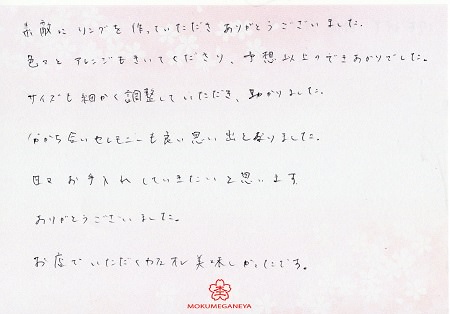 素敵にリングを作っていただきありがとうございました。
色々とアレンジもきいてくださり、予想以上のできあがりでした。
サイズも細かく調整していただき、助かりました。
分かち合いセレモニーも良い思い出となりました。
日々お手入れしていきたいと思います。
ありがとうございました。
お店でいただくカフェオレ美味しかったです。
MOKUMEGANEYA